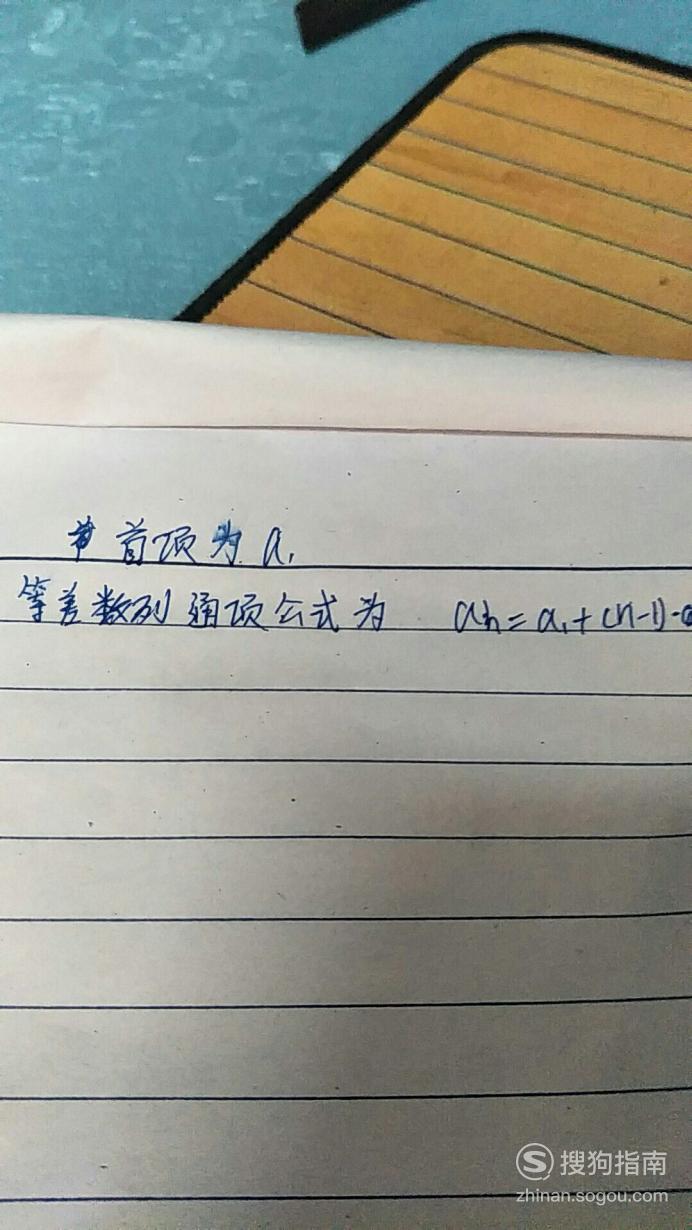 首项为 a₁
等差数列通项公式为 an = a₁ + (n-1)·
搜狗指南
zhinan.sogou.com